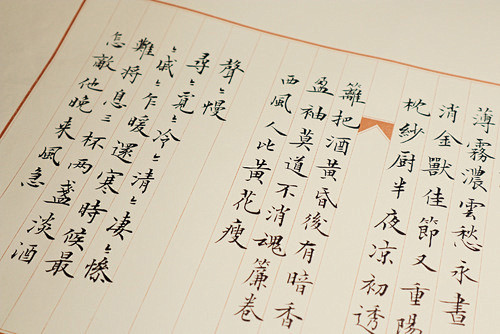 薄霧濃雲愁永晝
消金獸佳節又重陽
枕紗厨半夜凉初透
籬把酒黃昏後有暗香
盈袖莫道不消魂簾卷
西風人比黃花瘦
聲〻慢
尋〻覓〻冷〻清〻凄〻慘
〻戚〻乍暖還寒時候最
難將息三杯兩盞淡酒
怎敵他晚來風急